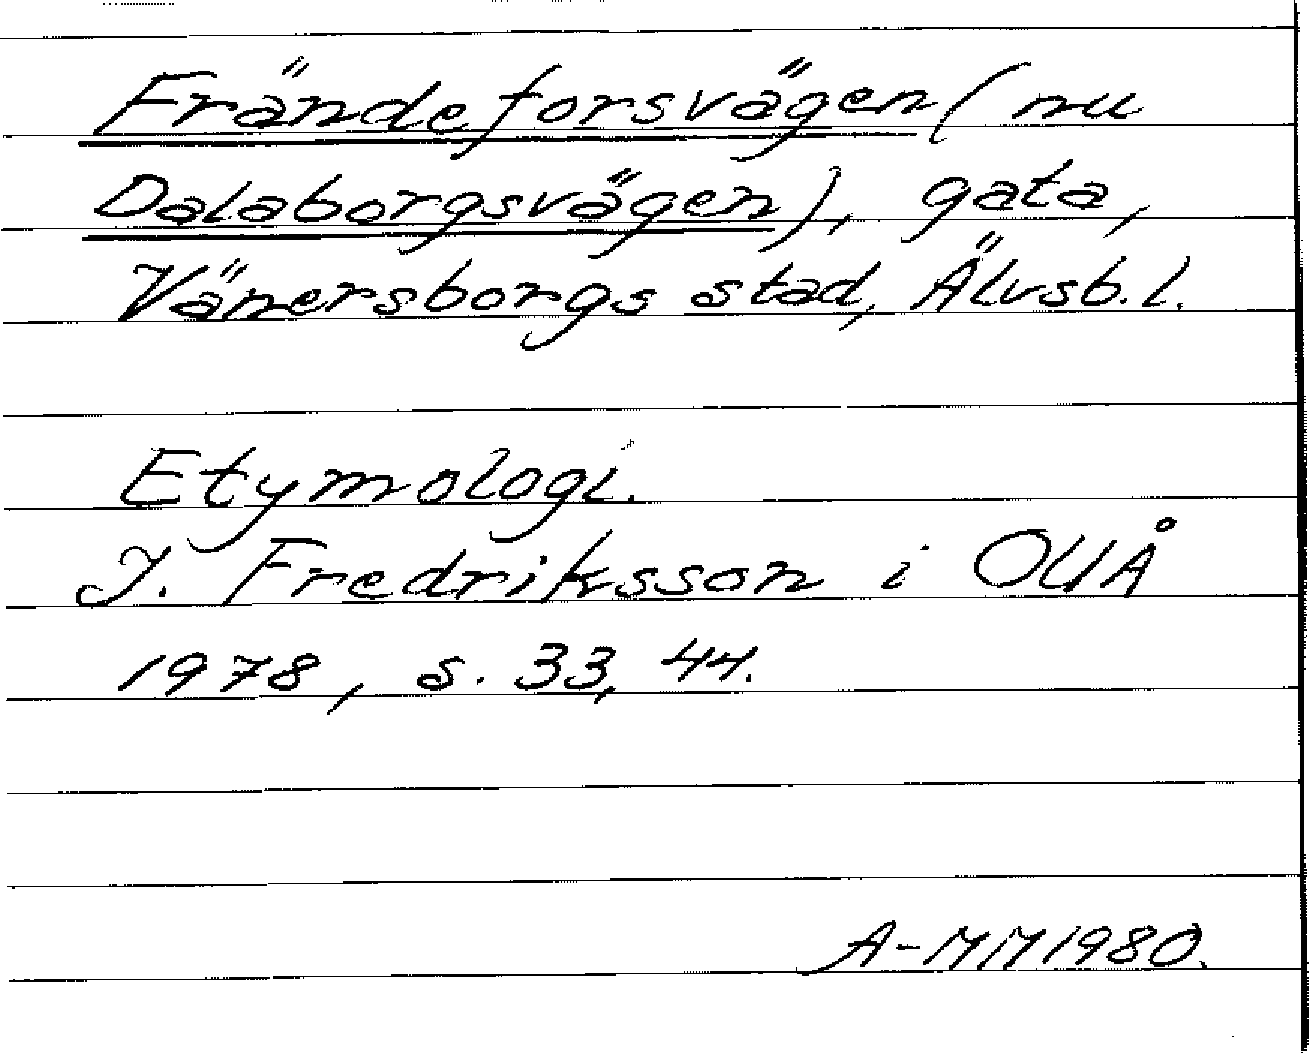 Frändeforsvägen (nu
Dalaborgsvägen), gata,
Vänersborgs stad, Älvsb. l.
Etymologi.
I. Fredriksson i OUÅ
1978, s. 33, 44.
A-MM 1980.